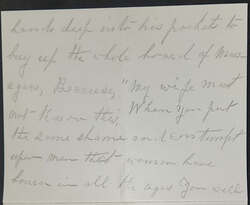 hands deep into his pockets to
buy up the whole board of
agers, Because, "My wife must
not know this, When you put
the same shame and contempt
upon men that women have
borne in all the ages You will